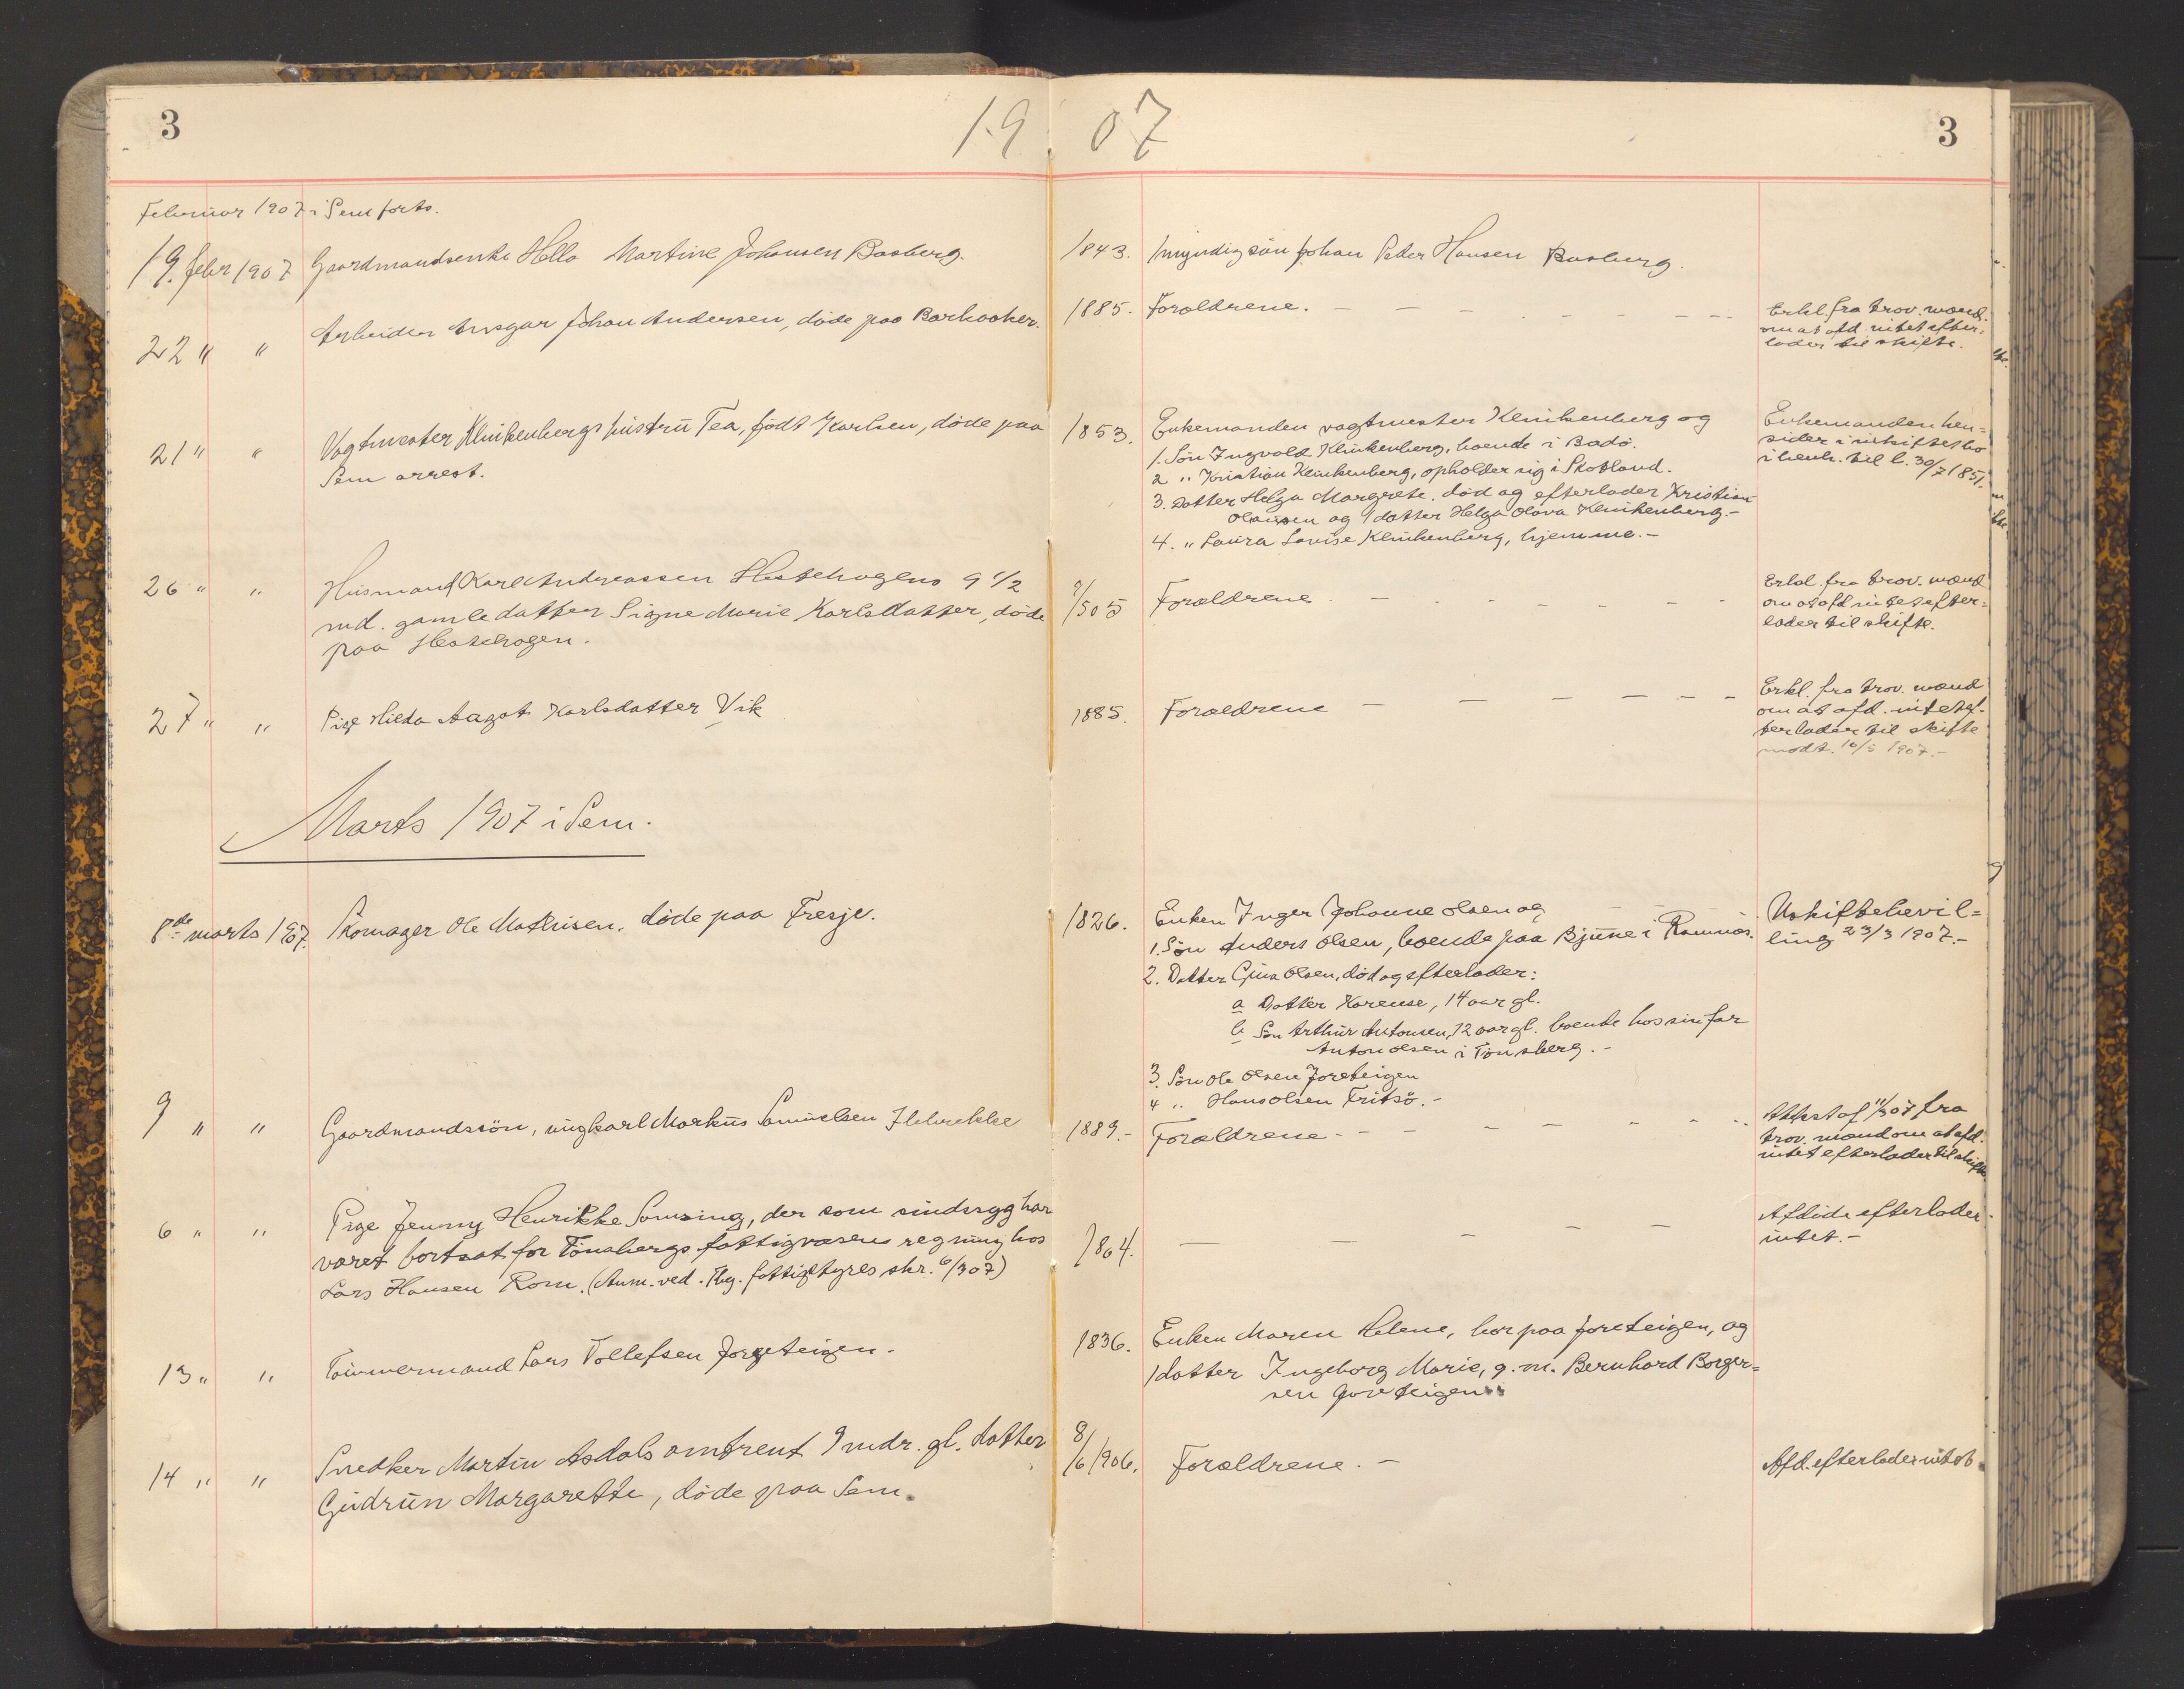 3 1907 3
Februar 1907 i Sem forts.
19. febr 1907 Gaardmandsenke Hella Martine Johansen Basberg. 1843. 1 myndig søn Johan Peter Hansen Basberg.
22 " " Arbeider Ansgar Johan Andersen, døde paa Barkaaker. 1885. Forældrene. — — — — — — Erkl. fra trov. mænd
om at afd. intet efter-
lader til skifte.
21 " " Vagtmester Klinkenbergs hustru Tea, født Karlsen, døde paa
Sem arrest.
1853. Enkemanden vagtmester Klinkenberg og
1. Søn Ingvald Klinkenberg, boende i Bodø.
2 " Kristian Klinkenberg, opholder sig i Skotland.
3. Datter Helga Margrete, død og efterlader Kristian
Olausen og 1 datter Helga Olava Klinkenberg.-
4. " Laura Lovise Klinkenberg, hjemme.-
Enkemanden hen=
sider i uskiftet bo
i henh. til l. 30/7 1851.
26 " " Husmand Karl Andreassen Hestehagens 9 1/2
md. gamle datter Signe Marie Karlsdatter, døde
paa Hestehagen.
9/5 05 Forældrene. — — — — — —
Erkl. fra trov. mænd
om at afd intet efter=
lader til skifte.
27 " " Pige Hilda Aagot Karlsdatter Vik 1885. Forældrene — — — — — —
Erkl. fra trov. mænd
om at afd. intet ef-
terlader til skifte
modt. 10/5 1907.-
Marts 1907 i Sem.
8de marts 1907 Skomager Ole Mathisen, døde paa Fresje.
1826. Enken Inger Johanne Olsen og
1. Søn Anders Olsen, boende paa Bjune i Ramnæs.
2. Datter Gina Olsen, død og efterlader:
a Datter Karense, 14 aar gl.
b Søn Arthur Antonsen, 12 aar gl. boende hos sin far
Anton Olsen i Tønsberg.-
3. Søn Ole Olsen Joreteigen
4 " Hans Olsen Fritsø.-
Uskiftebevil=
ling 23/3 1907.-
9 " " Gaardmandssøn, ungkarl Markus Samuelsen Ilebrekke 1889.- Forældrene - - — — — — —
Attest af 11/3 07 fra
trov. mænd om at afd.
intet efterlader til skifte
6 " " Pige Jenny Henrikke Samsing, der som sindssyg har
været bortsat for Tønsbergs fattigvæsens regning hos
Lars Hansen Rom. (Anm. ved. Tbg. fattigstyres skr. 6/3 07)
1864. — — — — —
Afdøde efterlader
intet.-
13 " " Tømmermand Lars Tollefsen Joreteigen.
1836. Enken Maren Helene, bor paa Joreteigen, og
1 datter Ingeborg Marie, g. m. Bernhard Borger=
sen Joreteigen
14 " " Snedker Martin Asdals omtrent 9 mdr. gl. datter
Gudrun Margarette, døde paa Sem.
8/6 1906. Forældrene.-
Afd. efterlader intet